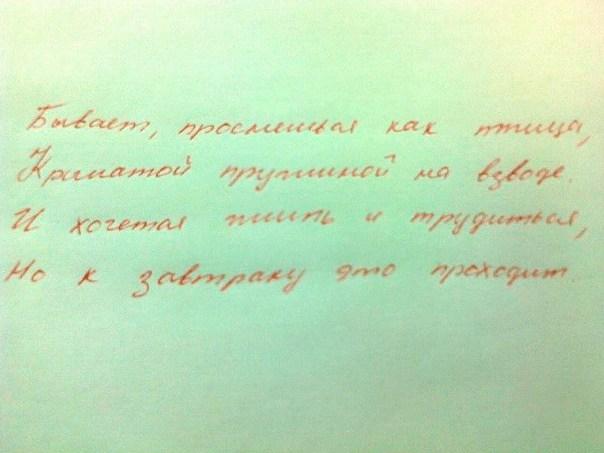 Бывает, проснешься как птица,
Крылатой пружиной на взводе.
И хочется жить и трудиться,
Но к завтраку это проходит.